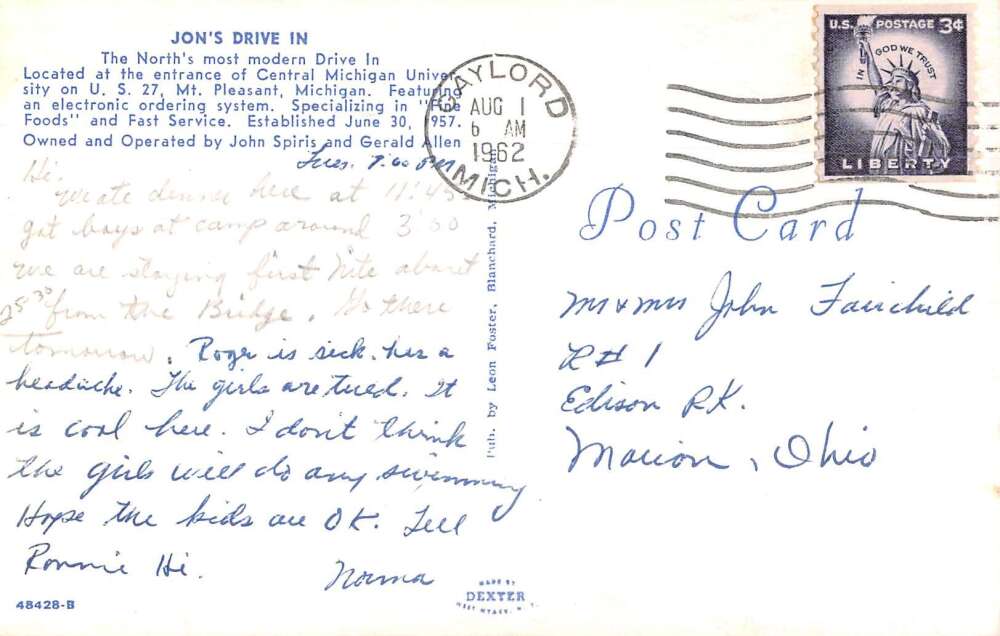 JON'S DRIVE IN
The North's most modern Drive In
Located at the entrance of Central Michigan Univer-
sity on U. S. 27, Mt. Pleasant, Michigan. Featuring
an electronic ordering system. Specializing in "Fine
Foods" and Fast Service. Established June 30, 1957.
Owned and Operated by John Spiris and Gerald Allen
Tues. 7:00 PM
Hi.
We ate dinner here at 11:45
got boys at camp around 3:00
we are staying first Nite about
25-30 from the Bridge. Go there
tomorrow. Roger is sick. has a
headache. The girls are tired. It
is cool here. I don't think
the girls will do any swimming
Hope the kids are OK. Tell
Ronnie Hi.
Norma
48428-B
Pub. by Leon Foster, Blanchard, Michigan
MADE BY
DEXTER
WEST NYACK, N. Y.
GAYLORD
AUG 1
6 AM
1962
MICH.
U.S. POSTAGE 3¢
IN GOD WE TRUST
LIBERTY
Post Card
Mr & Mrs John Fairchild
R # 1
Edison Rk.
Marion, Ohio